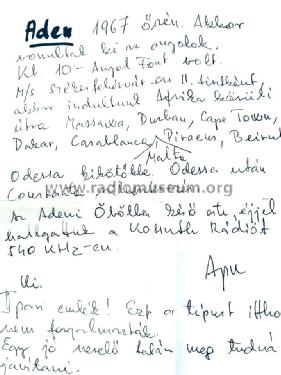 Aden 1967 őszén. Akkor
vonultak ki az angolok.
Kb. 10- Angol Font volt.
M/s Székesfehérvár on II. tisztként,
akkor indultunk Afrika körüli
útra Massawa, Durban, Cape Town,
Dakar, Casablanca, Piraeus, Beirut
Malta
Odessa kikötőkbe Odessa után
Constanta
www.radiomuseum.org
Az Adeni Öbölben késő este, éjjel
hallgattuk a Kossuth Rádiót
540 KHz-en.
Apu
Ui.
Ipari emlék! Ezt a típust itthon
nem forgalmazták.
Egy jó szerelő talán meg tudná
javítani.